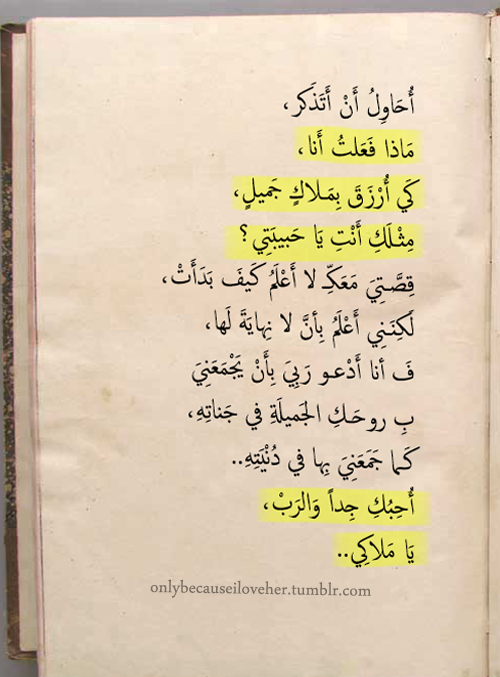 أُحَاوِلُ أَنْ أَتَذَكر،
مَاذا فَعَلتُ أَنا،
كَي أُرْزَقَ بِمَلاكٍ جَميلٍ،
مِثْلَكِ أَنْتِ يَا حَبيبَتِي؟
قِصَّتِيَ مَعَكِـ لا أَعْلَمُ كَيفَ بَدَأَتْ،
لَكِنَنِي أَعْلَمُ بِأنَّ لا نِهايَةَ لَها،
فَ أنا أَدْعـو رَبِيَ بِأَنْ يَجْمَعَنِيَ
بِ روحَـكِ الجَميلَةِ في جَناتِهِ،
كَـما جَمَعَنِيَ بِها في دُنْيَتِهِ..
أُحِبُكِ جِداً وَالرَبْ،
يَا مَلاكِي..
onlybecauseiloveher.tumblr.com